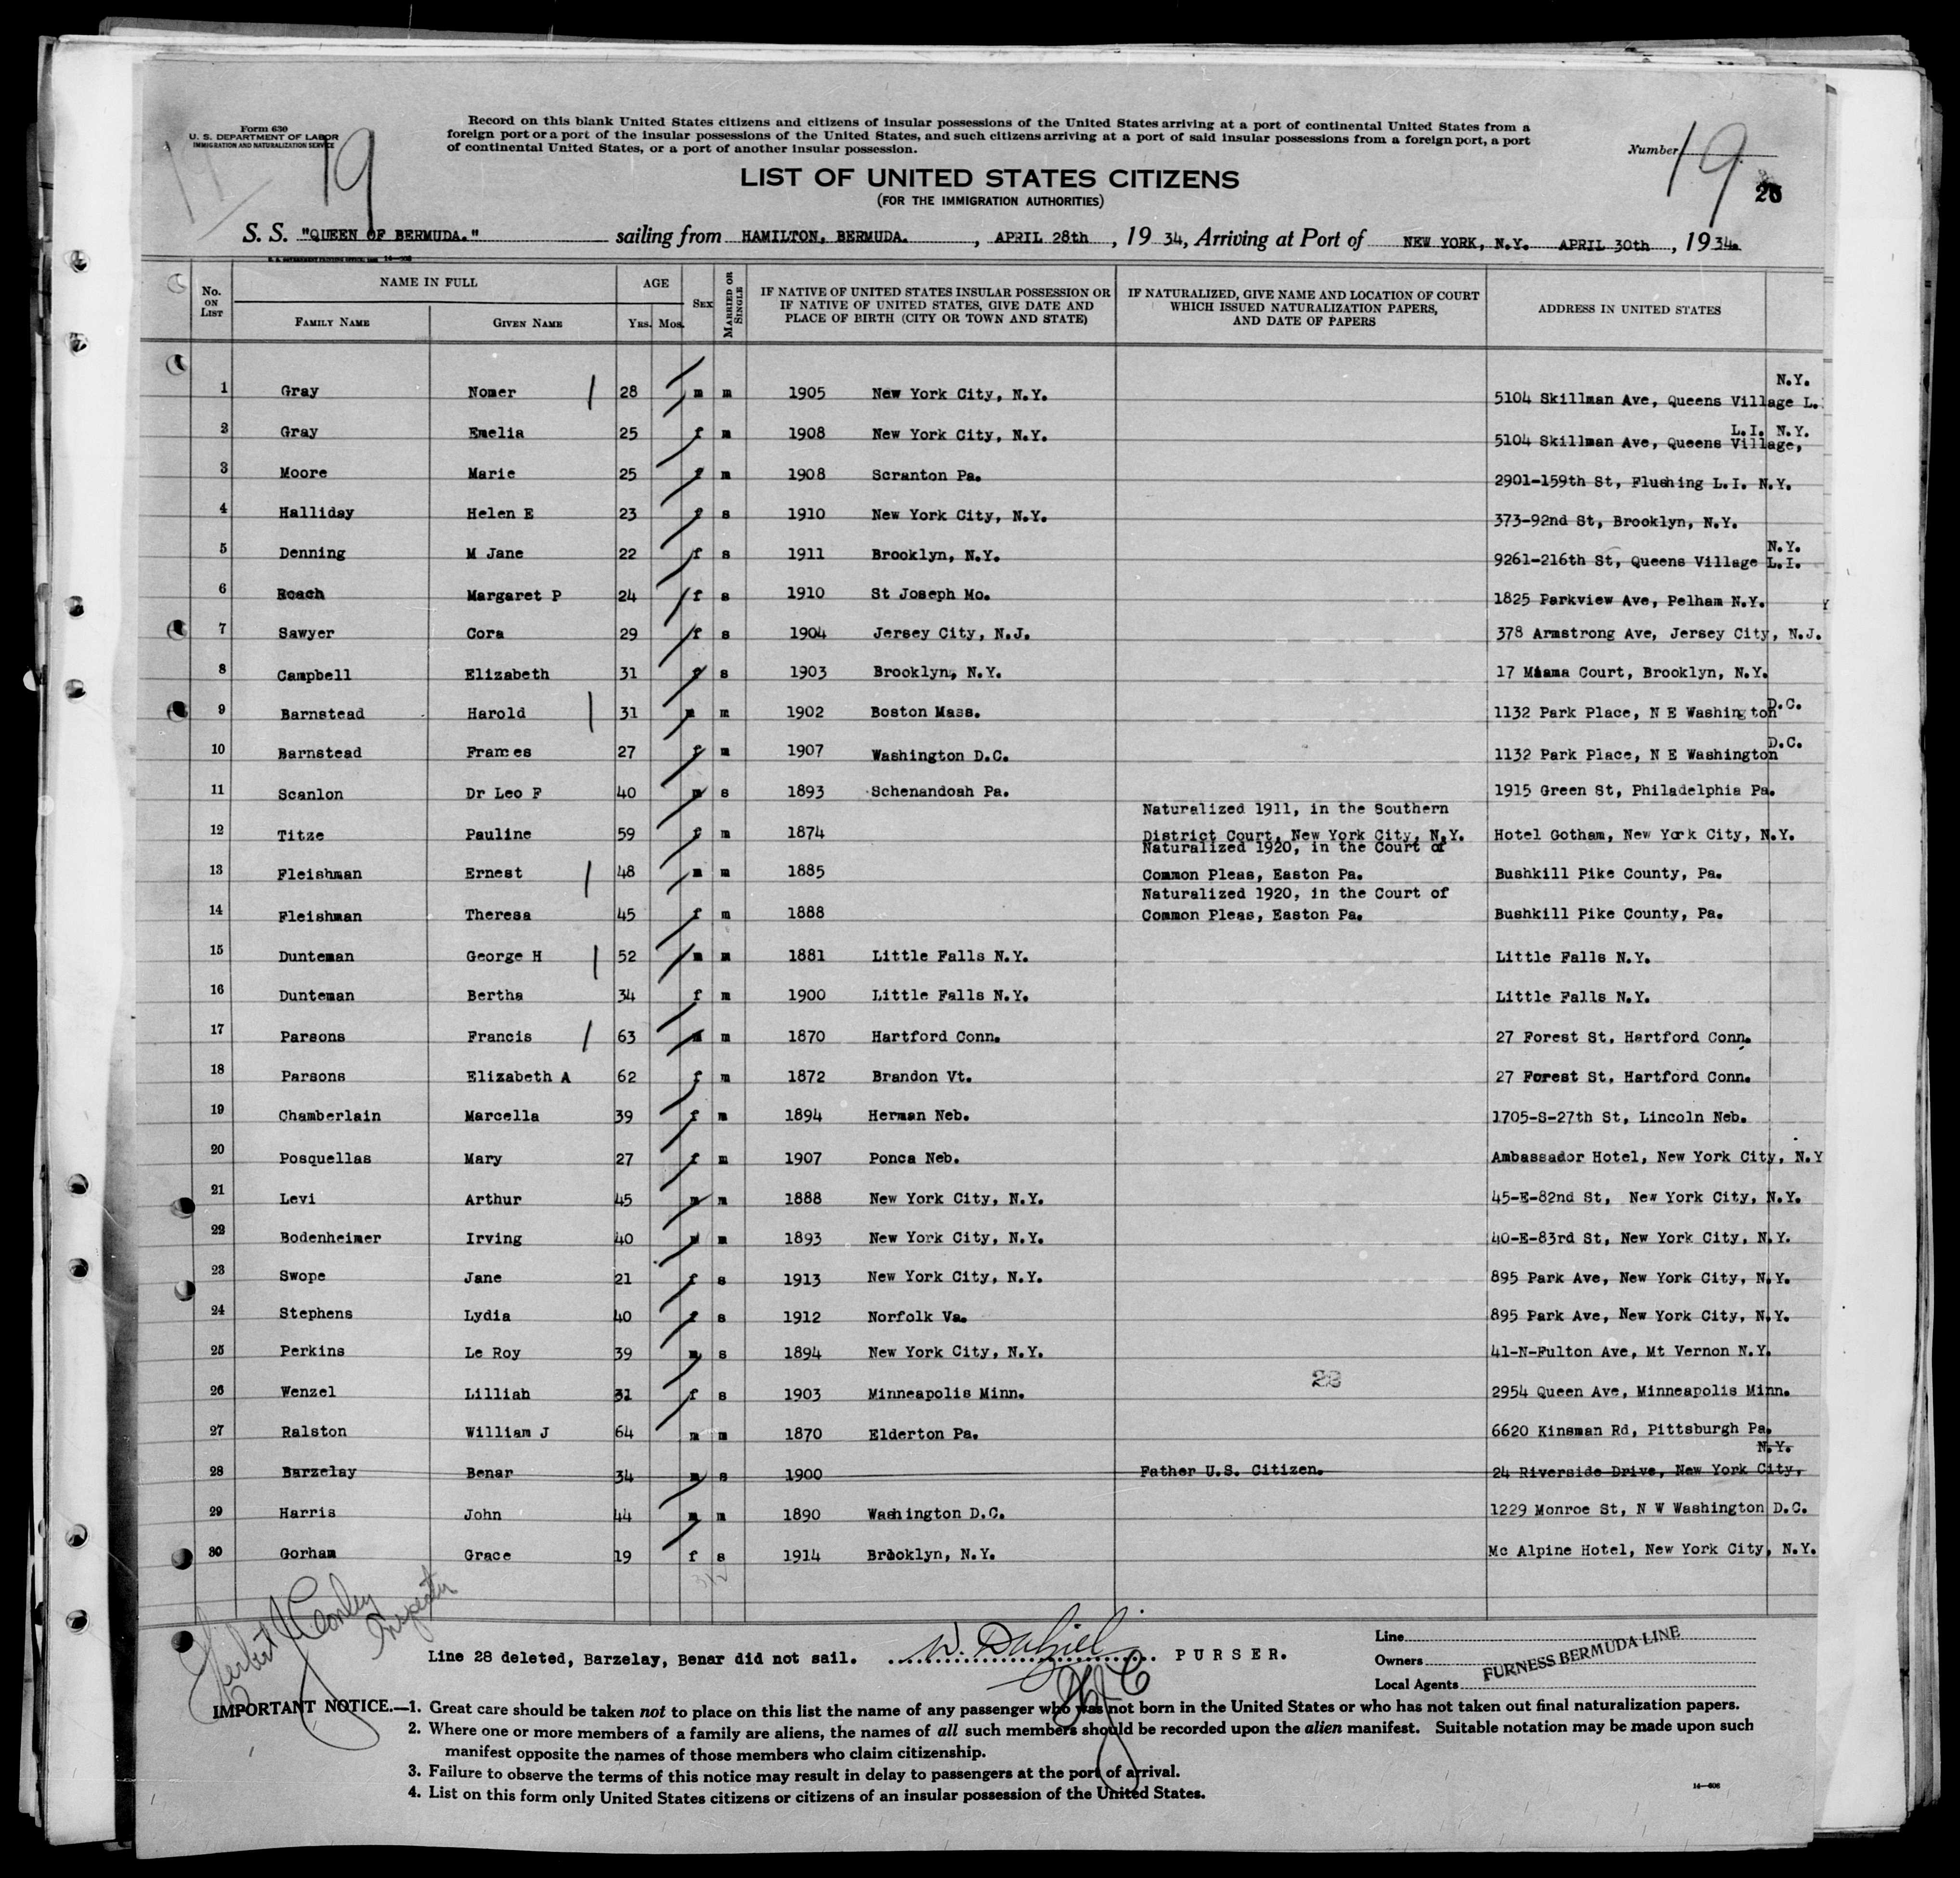 Form 630
U. S. DEPARTMENT OF LABOR
IMMIGRATION AND NATURALIZATION SERVICE
19
Record on this blank United States citizens and citizens of insular possessions of the United States arriving at a port of continental United States from a
foreign port or a port of the insular possessions of the United States, and such citizens arriving at a port of said insular possessions from a foreign port, a port
of continental United States, or a port of another insular possession.
Number 19
LIST OF UNITED STATES CITIZENS
(FOR THE IMMIGRATION AUTHORITIES)
S. S. "QUEEN OF BERMUDA." sailing from HAMILTON, BERMUDA. , APRIL 28th , 19 34, Arriving at Port of NEW YORK, N.Y. APRIL 30th , 19 34.
No. ON LIST NAME IN FULL FAMILY NAME GIVEN NAME AGE YRS. MOS. SEX MARRIED OR SINGLE IF NATIVE OF UNITED STATES INSULAR POSSESSION OR IF NATIVE OF UNITED STATES, GIVE DATE AND PLACE OF BIRTH (CITY OR TOWN AND STATE) IF NATURALIZED, GIVE NAME AND LOCATION OF COURT WHICH ISSUED NATURALIZATION PAPERS, AND DATE OF PAPERS ADDRESS IN UNITED STATES
1 Gray Nomer 28 m m 1905 New York City, N.Y. 5104 Skillman Ave, Queens Village L. N.Y.
2 Gray Emelia 25 f m 1908 New York City, N.Y. 5104 Skillman Ave, Queens Village, L.I. N.Y.
3 Moore Marie 25 f m 1908 Scranton Pa. 2901-159th St, Flushing L.I. N.Y.
4 Halliday Helen E 23 f s 1910 New York City, N.Y. 373-92nd St, Brooklyn, N.Y.
5 Denning M Jane 22 f s 1911 Brooklyn, N.Y. 9261-216th St, Queens Village L.I. N.Y.
6 Roach Margaret P 24 f s 1910 St Joseph Mo. 1825 Parkview Ave, Pelham N.Y.
7 Sawyer Cora 29 f s 1904 Jersey City, N.J. 378 Armstrong Ave, Jersey City, N.J.
8 Campbell Elizabeth 31 f s 1903 Brooklyn, N.Y. 17 Miama Court, Brooklyn, N.Y.
9 Barnstead Harold 31 m m 1902 Boston Mass. 1132 Park Place, N E Washington D.C.
10 Barnstead Frances 27 f m 1907 Washington D.C. 1132 Park Place, N E Washington D.C.
11 Scanlon Dr Leo F 40 m s 1893 Schenandoah Pa. 1915 Green St, Philadelphia Pa.
12 Titze Pauline 59 f m 1874 Naturalized 1911, in the Southern District Court, New York City, N.Y. Hotel Gotham, New York City, N.Y.
13 Fleishman Ernest 48 m m 1885 Naturalized 1920, in the Court of Common Pleas, Easton Pa. Bushkill Pike County, Pa.
14 Fleishman Theresa 45 f m 1888 Naturalized 1920, in the Court of Common Pleas, Easton Pa. Bushkill Pike County, Pa.
15 Dunteman George H 52 m m 1881 Little Falls N.Y. Little Falls N.Y.
16 Dunteman Bertha 34 f m 1900 Little Falls N.Y. Little Falls N.Y.
17 Parsons Francis 63 m m 1870 Hartford Conn. 27 Forest St, Hartford Conn.
18 Parsons Elizabeth A 62 f m 1872 Brandon Vt. 27 Forest St, Hartford Conn.
19 Chamberlain Marcella 39 f m 1894 Herman Neb. 1705-S-27th St, Lincoln Neb.
20 Posquellas Mary 27 f m 1907 Ponca Neb. Ambassador Hotel, New York City, N.Y
21 Levi Arthur 45 m m 1888 New York City, N.Y. 45-E-82nd St, New York City, N.Y.
22 Bodenheimer Irving 40 m m 1893 New York City, N.Y. 40-E-83rd St, New York City, N.Y.
23 Swope Jane 21 f s 1913 New York City, N.Y. 895 Park Ave, New York City, N.Y.
24 Stephens Lydia 40 f s 1912 Norfolk Va. 895 Park Ave, New York City, N.Y.
25 Perkins Le Roy 39 m s 1894 New York City, N.Y. 41-N-Fulton Ave, Mt Vernon N.Y.
26 Wenzel Lilliah 31 f s 1903 Minneapolis Minn. 2954 Queen Ave, Minneapolis Minn.
27 Ralston William J 64 m m 1870 Elderton Pa. 6620 Kinsman Rd, Pittsburgh Pa.
28 Barzelay Benar 34 m s 1900 Father U.S. Citizen. 24 Riverside Drive, New York City, N.Y.
29 Harris John 44 m m 1890 Washington D.C. 1229 Monroe St, N W Washington D.C.
30 Gorham Grace 19 f s 1914 Brooklyn, N.Y. Mc Alpine Hotel, New York City, N.Y.
Inspector
Line 28 deleted, Barzelay, Benar did not sail. PURSER.
Line
Owners FURNESS BERMUDA LINE
Local Agents
IMPORTANT NOTICE.—1. Great care should be taken not to place on this list the name of any passenger who was not born in the United States or who has not taken out final naturalization papers.
2. Where one or more members of a family are aliens, the names of all such members should be recorded upon the alien manifest. Suitable notation may be made upon such
manifest opposite the names of those members who claim citizenship.
3. Failure to observe the terms of this notice may result in delay to passengers at the port of arrival.
4. List on this form only United States citizens or citizens of an insular possession of the United States.